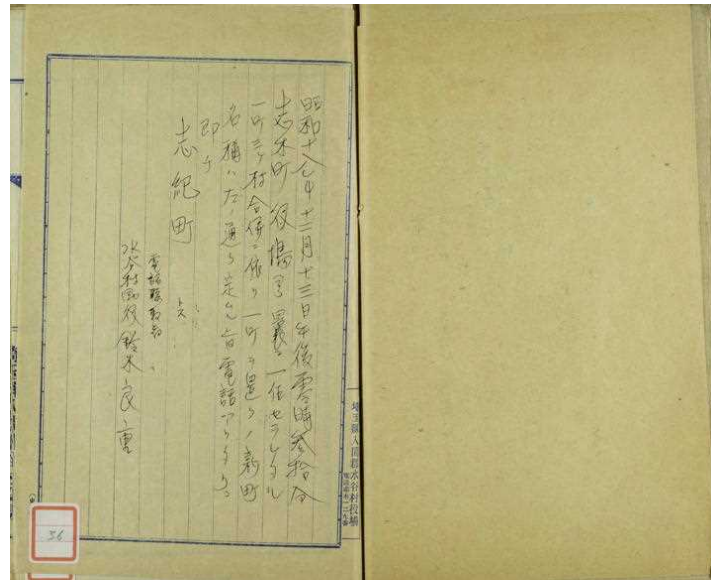 昭和十八年十二月十三日午後零時参拾分
志木町役場ヨリ曩ニ一任セラレタル
一町三ヶ村合併ニ依リ一町ヲ置クノ新町
名称ハ左ノ通リ定ム旨電話アリタリ
即チ
志紀町
電話聴取者
水谷村助役鈴木良
埼玉縣入間郡水谷村役場
36